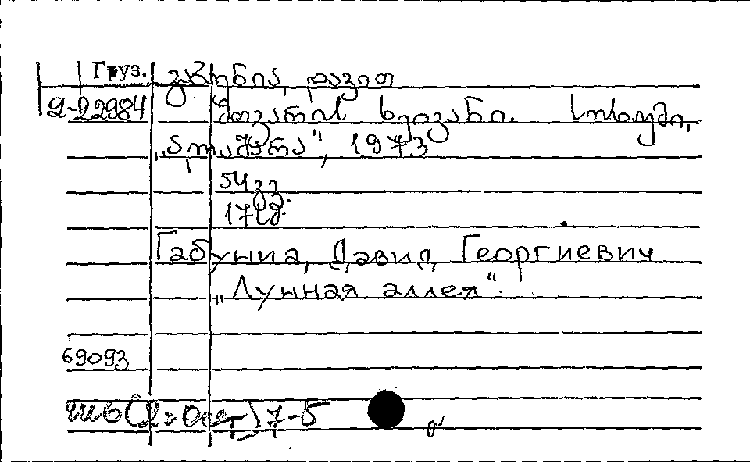 Груз. გაბუნია, დავით
2-22984 მთვარის ხეივანი. სოხუმი,
„ალაშარა", 1973
54 გვ.
17
Габуния, Давид Георгиевич
„Лунная аллея".
69093
7-5